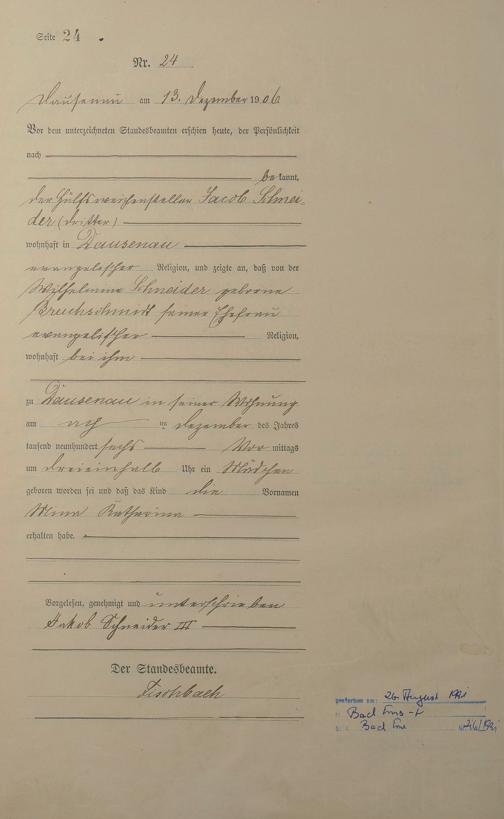 Seite 24.
Nr. 24
Dausenau am 13. Dezember 1906
Vor dem unterzeichneten Standesbeamten erschien heute, der Persönlichkeit
nach
bekannt,
der Hülfsweichensteller Jacob Schnei-
der (dritter)
wohnhaft in Dausenau
evangelischer Religion, und zeigte an, daß von der
Wilhelmine Schneider geborne
Bruchschmidt seiner Ehefrau
evangelischer Religion,
wohnhaft bei ihm
zu Dausenau in seiner Wohnung
am Dezember des Jahres
tausend neunhundert sechs Vor mittags
um dreieinhalb Uhr ein Mädchen
geboren worden sei und daß das Kind die Vornamen
Mina Katharina
erhalten habe.
Vorgelesen, genehmigt und unterschrieben
Jakob Schneider III
Der Standesbeamte.
Fischbach
gestorben am: 26. August
Bad Ems
Bad Ems